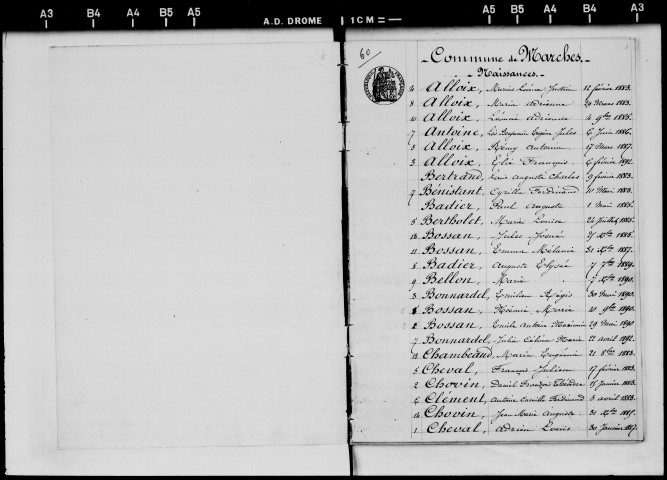 A3 B4 A4 B5 A5 A.D. DROME 1 CM = A5 B5 A4 B4 A3
60
Commune de Marches.
Naissances.
Alloix, Marius Louis 12 février 1883.
8 Alloix, Maria Adrienne 29 Mars 1883.
10 Alloix, Léoncie Adrienne 4 9bre 1885.
7 Antoine, Léo Benjamin Jules 6 Juin 1886.
3 Alloix, Rémy Antonin 17 Mars 1887.
3 Alloix, Elie François 6 février 1892.
Bertrand, Louis Auguste Charles 9 février 1883.
7 Bénistant, Cyrille Ferdinand 10 Mai 1883.
Badier, Paul Auguste 1 Mai 1885.
5 Bertholet, Marie Louise 24 Juillet
13 Bossan, Jules Josué Xbre 1885.
11 Bossan, Emma Mélanie 31 Xbre 1887.
8 Badier, Auguste Elysée 7 7bre 1889.
9 Bellon, Marie 7 1890.
3 Bonnardel, Emilien Régis 30 Mai 1890.
8 Bossan, Noémie Marie 10 9bre 1890.
2 Bossan, Emile Antoine Maximin 29 Mai 1890
7 Bonnardel, Julie Marie 22 avril 1892.
13 Chambeaud, Marie Eugénie 21 8bre 1883.
5 Cheval, François Julien 17 février 1883.
2 Chovin, Daniel François 15 janvier 1883.
6 Clément, Antoine Camille Ferdinand 3 avril 1883.
14 Chovin, Jean Marie Auguste 31 Xbre 1885.
1 Cheval, Adrien Louis 30 Janvier 1887.